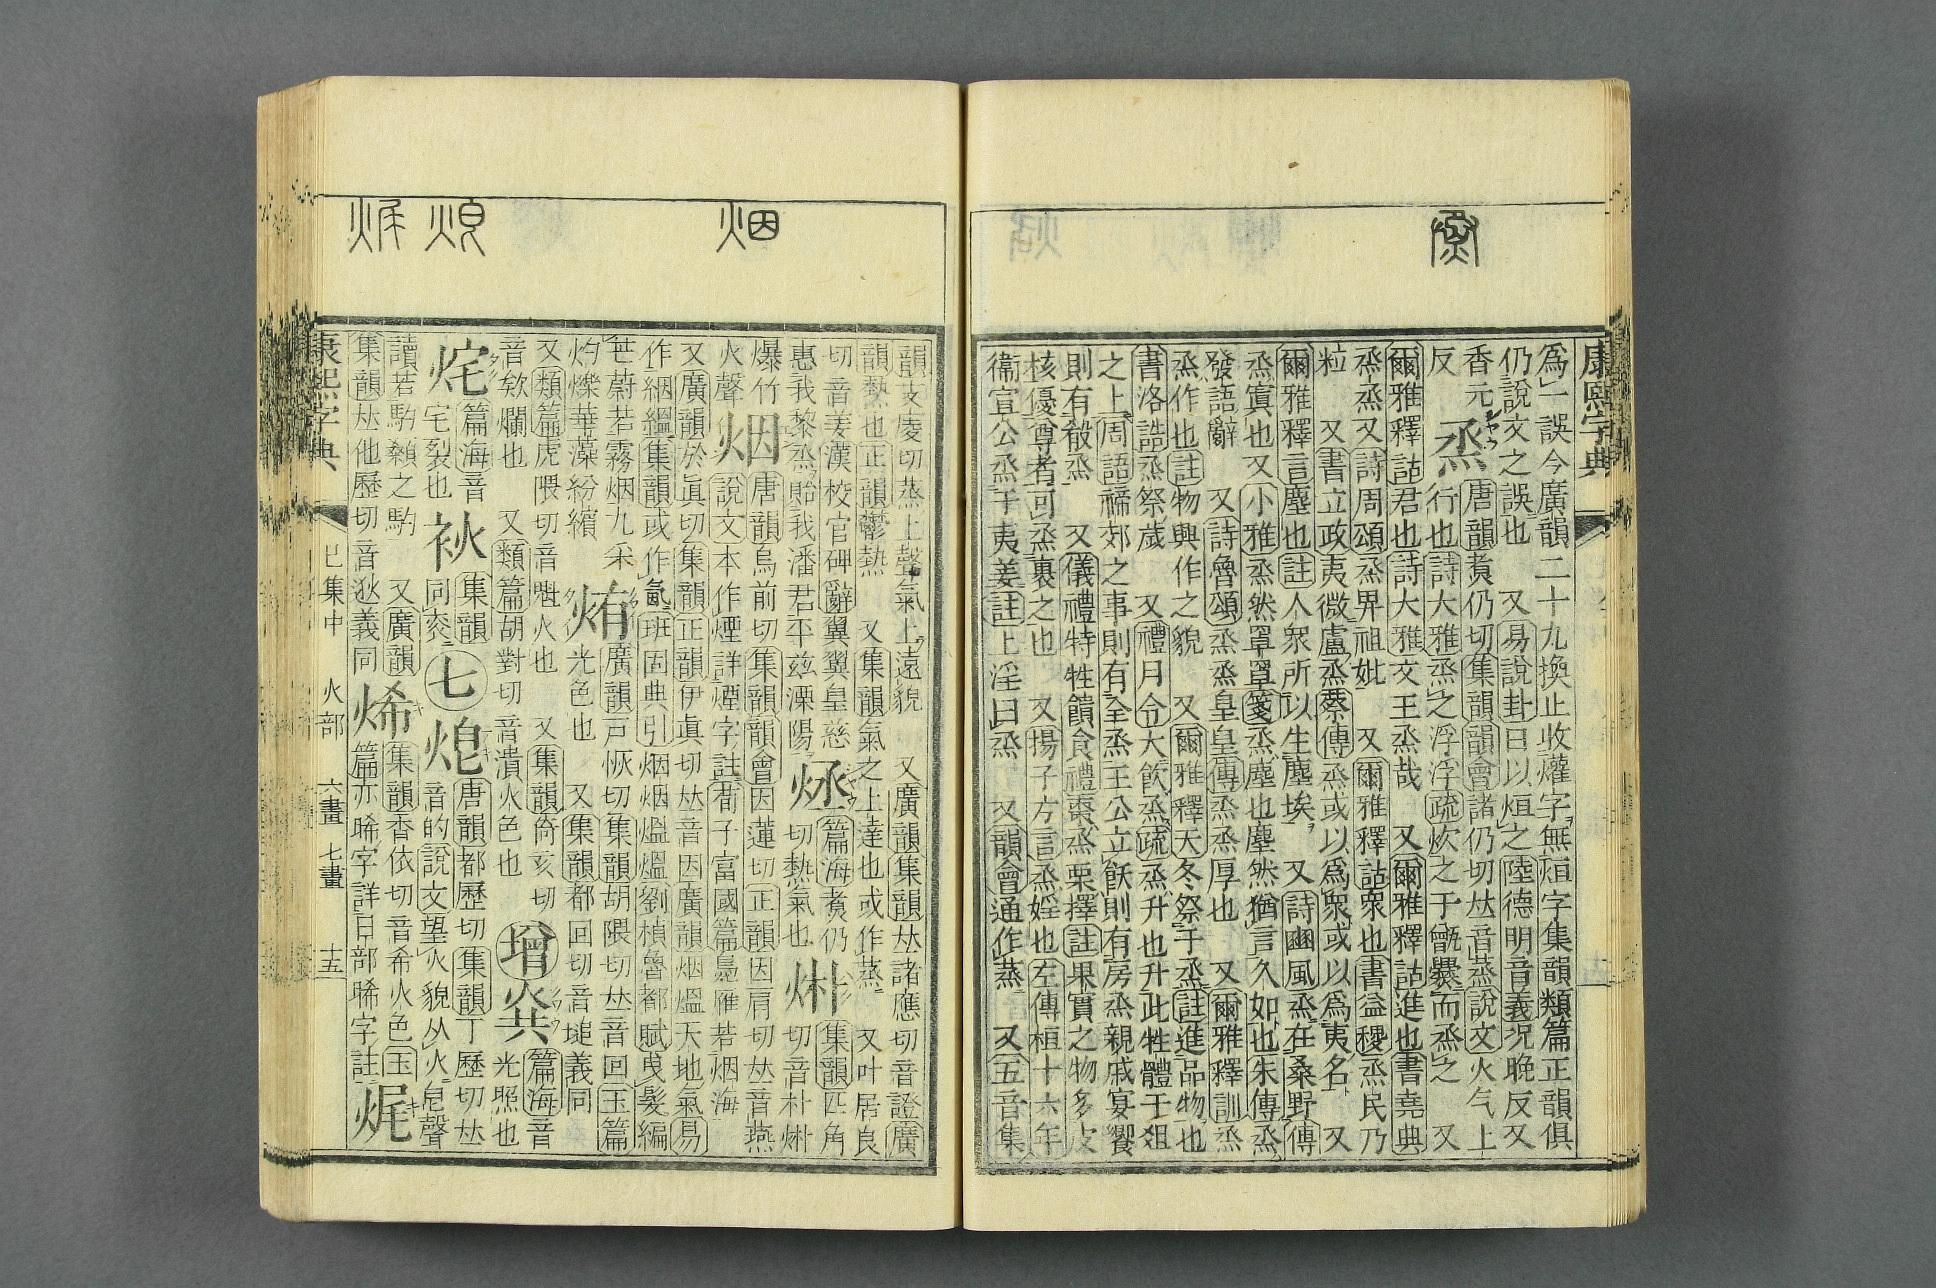 康熙字典
爲一誤今廣韻二十九換止收爟字無烜字集韻類篇正韻俱
仍說文之誤也 又易說卦曰以烜之陸德明音義況晚反又
香元
反
烝
唐韻煑仍切集韻韻會諸仍切𠀤音蒸說文火气上
行也詩大雅烝之浮浮疏炊之于甑爨而烝之 又
爾雅釋詁君也詩大雅文王烝哉 又爾雅釋詁進也書堯典
烝烝乂詩周頌烝畀祖妣 又爾雅釋詁眾也書益稷烝民乃
粒 又書立政夷微盧烝蔡傳烝或以爲眾或以爲夷名 又
爾雅釋言塵也註人眾所以生塵埃 又詩豳風烝在桑野傳
烝窴也又小雅烝然罩罩箋烝塵也塵然猶言久如也朱傳烝
發語辭 又詩魯頌烝烝皇皇傳烝烝厚也 又爾雅釋訓烝
烝作也註物興作之貌 又爾雅釋天冬祭于烝註進品物也
書洛誥烝祭歲 又禮月令大飮烝疏烝升也升此牲體于俎
之上周語禘郊之事則有全烝王公立飫則有房烝親戚宴饗
則有殽烝 又儀禮特牲饋食禮棗烝栗擇註果實之物多皮
核優尊者可烝裹之也 又揚子方言烝婬也左傳桓十六年
衞宣公烝于夷姜註上淫曰烝 又韻會通作蒸 又五音集
韻支庱切蒸上聲氣上遠貌 又廣韻集韻𠀤諸應切音證廣
韻熱也正韻鬱熱 又集韻氣之上達也或作蒸 又叶居良
切音姜漢校官碑辭翼翼皇慈
惠我黎烝貽我潘君平兹溧陽
篇海煑仍
切熱氣也
烞
集韻匹角
切音朴烞
爆竹
火聲
烟
唐韻烏前切集韻韻會因蓮切正韻因肩切𠀤音燕
說文本作煙詳煙字註荀子富國篇㬎雁若烟海
又廣韻於眞切集韻正韻伊眞切𠀤音因廣韻烟熅天地氣易
作絪縕集韻或作氤班固典引烟烟熅熅劉楨魯都賦曳髮編
芒蔚若霧烟九采
灼爍華藻紛繽
烠
廣韻戸恢切集韻胡隈切𠀤音回玉篇
光色也 又集韻都回切音㙗義同
又類篇虎隈切音魁火也 又集韻
音欸爛也 又類篇胡對切音潰火色也
增
篇海音
光照也
烢
篇海音
宅裂也
集韻
同
七
炮
唐韻都歷切集韻丁歷切𠀤
音的說文望火貌从火皀聲
讀若馰顙之馰 又廣韻
集韻𠀤他歷切音逖義同
烯
集韻香依切音希火色玉
篇亦晞字詳日部晞字註
焜
康熙字典 巳集中 火部 六畫 七畫 十五